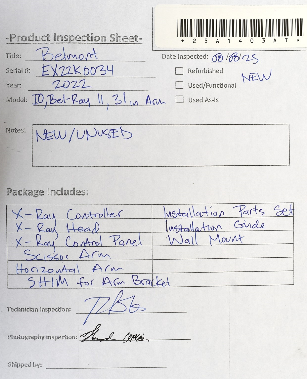 -Product Inspection Sheet-
Title: Belmont
Date Inspected: 08/08/25
Serial#: EX22K0034
Refurbished
NEW
Year: 2022
Used/Functional
Model: Bel-Ray II, 31 in Arm
Used As-Is
Notes: NEW/UNUSED
Package Includes:
X-Ray Controller
Installation Parts Set
X-Ray Head
Installation Guide
X-Ray Control Panel
Wall Mount
Scissor Arm
Horizontal Arm
SHIM for Arm Bracket
Technician Inspection:
Photography Inspection:
Shipped by: